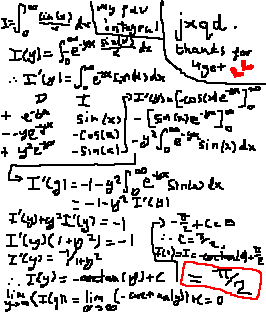 I=∫₀^∞ sin(x)/x dx
my fav integral
jxqd.
thanks for
4get
I(y)=∫₀^∞ e^-yx sin(x)/x dx
∴ I'(y)=∫₀^∞ e^-yx sin(x)dx
D I
+ e^-yx sin(x)
- -ye^-yx -cos(x)
+ y²e^-yx -sin(x)
I'(y)=[-cos(x)e^-yx]₀^∞
-[sin(x)e^-yx]₀^∞
-y²∫₀^∞ e^-yx sin(x)dx
I'(y)=-1-y²∫₀^∞ e^-yx sin(x)dx
=-1-y² I'(y)
I'(y)+y²I'(y)=-1
I'(y)(1+y²)=-1
I'(y)=-1/1+y²
∴ I(y)=-arctan(y)+C
lim y→∞ (I(y))=lim y→∞ (-arctan(y))+C=0
-π/2+C=0
∴ C=π/2
I(0)=I=-arctan(0)+π/2
=π/2